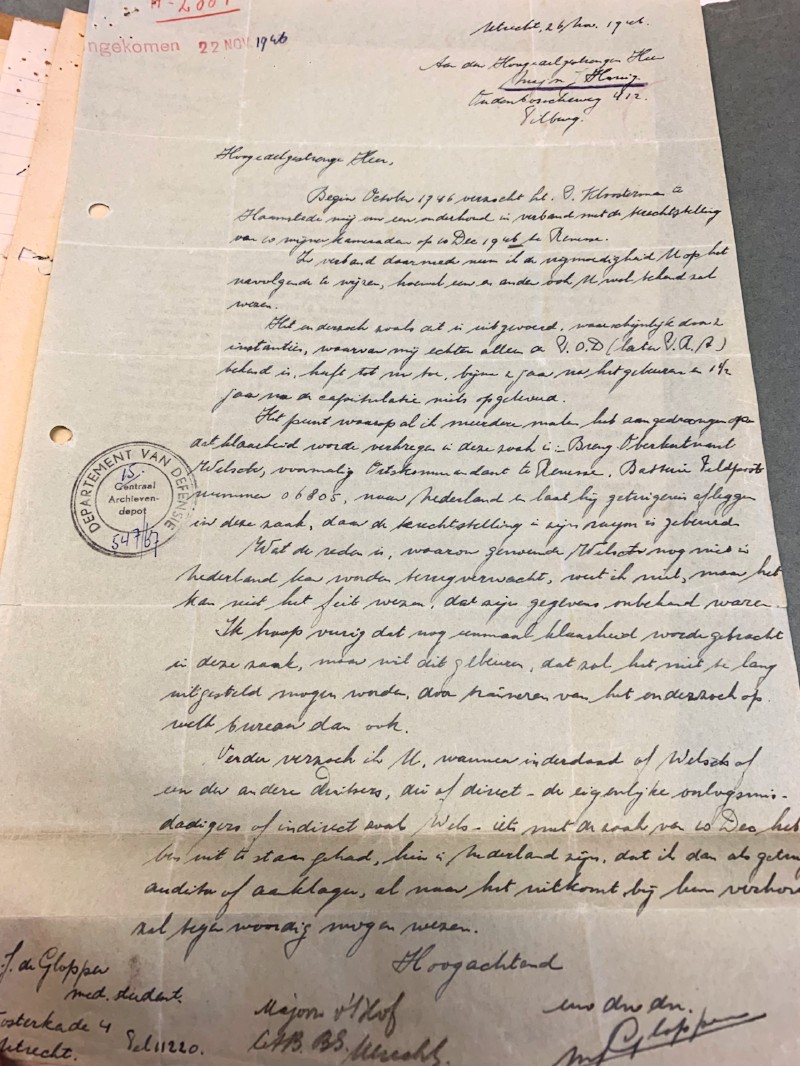 A-2001
ngekomen 22 NOV 1946
Utrecht, 26 Nov. 1946.
Aan den Hoogedelgestrengen Heer
Honig.
Oudenboscheweg 412.
Tilburg.
Hoogedelgestrenge Heer,
Begin October 1946 verzocht ht. D. Kloosterman te
Haamstede mij om een onderhoud in verband met de terechtstelling
van 10 mijner kameraden op 10 Dec 1946 te Renesse.
In verband daarmede neem ik de vrijmoedigheid U op het
navolgende te wijzen, hoewel een en ander ook U wel bekend zal
wezen.
Het onderzoek zoals dit is uitgevoerd, waarschijnlijk door 2
instanties, waarvan mij echter alleen de P.O.D (later P.R.A)
bekend is, heeft tot nu toe, bijna 2 jaar na het gebeuren en 1½
jaar na de capitulatie niets opgeleverd.
Het punt waarop al ik meerdere malen heb aangedrongen opdat
dat klaarheid worde verkregen in deze zaak is:- Breng Oberleutnant
Welsch, voormalig Ortskommandant te Renesse, Batterie Feldpost
nummer 06805, naar Nederland en laat hij getuigenis afleggen
in deze zaak, daar de terechtstelling in zijn rayon is gebeurd
Wat de reden is, waarom genoemde Welsch nog niet in
Nederland kan worden terugverwacht, weet ik niet, maar het
kan niet het feit wezen, dat zijn gegevens onbekend waren.
Ik hoop vurig dat nog eenmaal klaarheid worde gebracht
in deze zaak, maar wil dit gebeuren, dat zal het niet te lang
uitgesteld mogen worden, door traineren van het onderzoek op
welk bureau dan ook.
Verder verzoek ik U, wanneer inderdaad of Welsch of
een der andere Duitsers, die of direct - de eigenlijke oorlogsmis-
dadigers of indirect zoals Wels - iets met de zaak van 10 Dec heb
ben uit te staan gehad, hier in Nederland zijn, dat ik dan als getuige
auditor of aanklager, al naar het uitkomt bij hun verhoor
zal tegenwoordig mogen wezen.
Hoogachtend
uw dw dn.
Gloppen
J. de Gloppen
med. student.
osterkade 4
Utrecht. Tel 11220.
Majoor v't Hof
B.S. Utrecht.
DEPARTEMENT VAN DEFENSIE
15
Centraal
Archieven-
depot
547/67